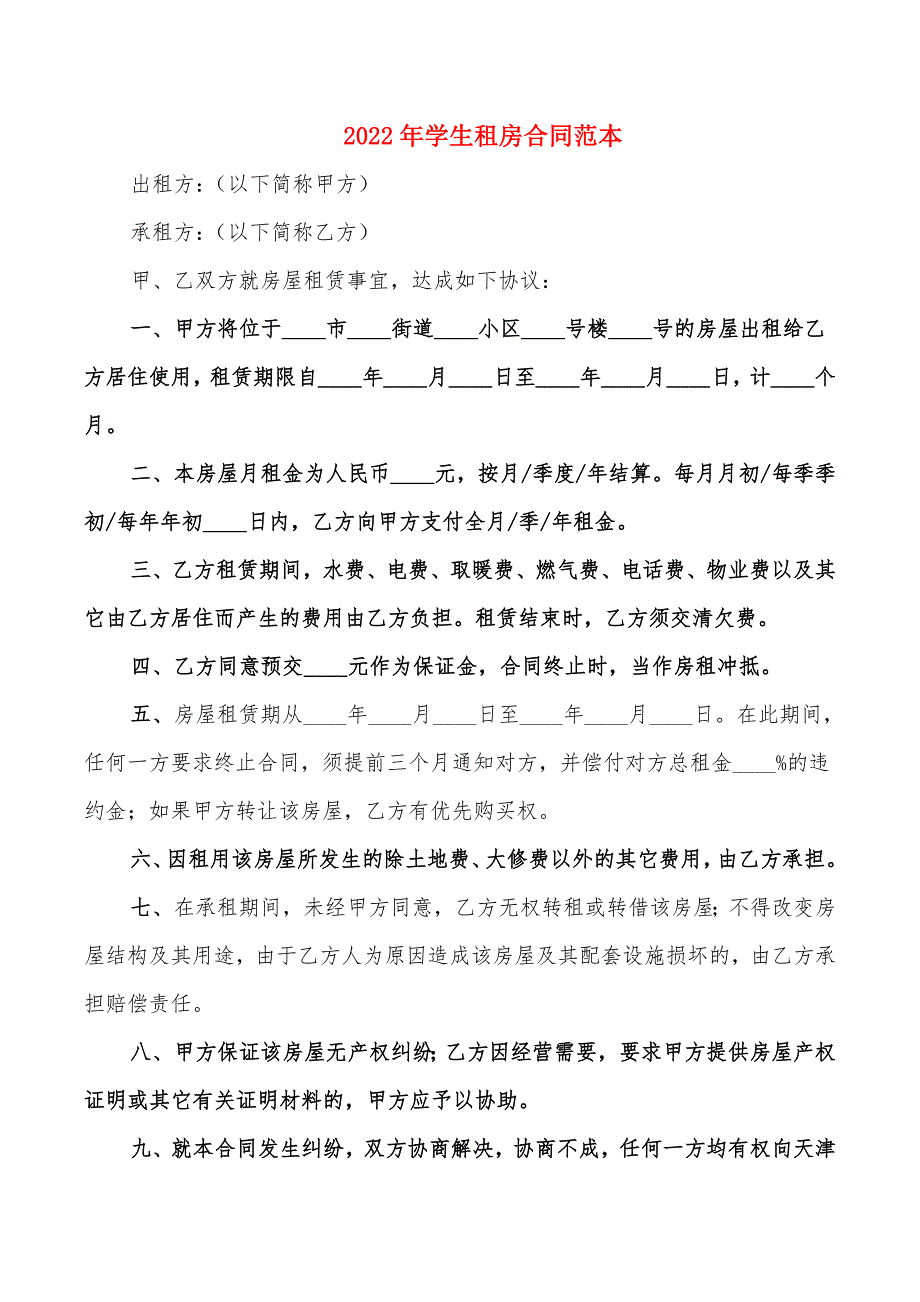 2022年学生租房合同范本
出租方：（以下简称甲方）
承租方：（以下简称乙方）
甲、乙双方就房屋租赁事宜，达成如下协议：
一、甲方将位于____市____街道____小区____号楼____号的房屋出租给乙
方居住使用，租赁期限自____年____月____日至____年____月____日，计____个
月。
二、本房屋月租金为人民币____元，按月/季度/年结算。每月月初/每季季
初/每年年初____日内，乙方向甲方支付全月/季/年租金。
三、乙方租赁期间，水费、电费、取暖费、燃气费、电话费、物业费以及其
它由乙方居住而产生的费用由乙方负担。租赁结束时，乙方须交清欠费。
四、乙方同意预交____元作为保证金，合同终止时，当作房租冲抵。
五、房屋租赁期从____年____月____日至____年____月____日。在此期间，
任何一方要求终止合同，须提前三个月通知对方，并偿付对方总租金____%的违
约金；如果甲方转让该房屋，乙方有优先购买权。
六、因租用该房屋所发生的除土地费、大修费以外的其它费用，由乙方承担。
七、在承租期间，未经甲方同意，乙方无权转租或转借该房屋；不得改变房
屋结构及其用途，由于乙方人为原因造成该房屋及其配套设施损坏的，由乙方承
担赔偿责任。
八、甲方保证该房屋无产权纠纷；乙方因经营需要，要求甲方提供房屋产权
证明或其它有关证明材料的，甲方应予以协助。
九、就本合同发生纠纷，双方协商解决，协商不成，任何一方均有权向天津